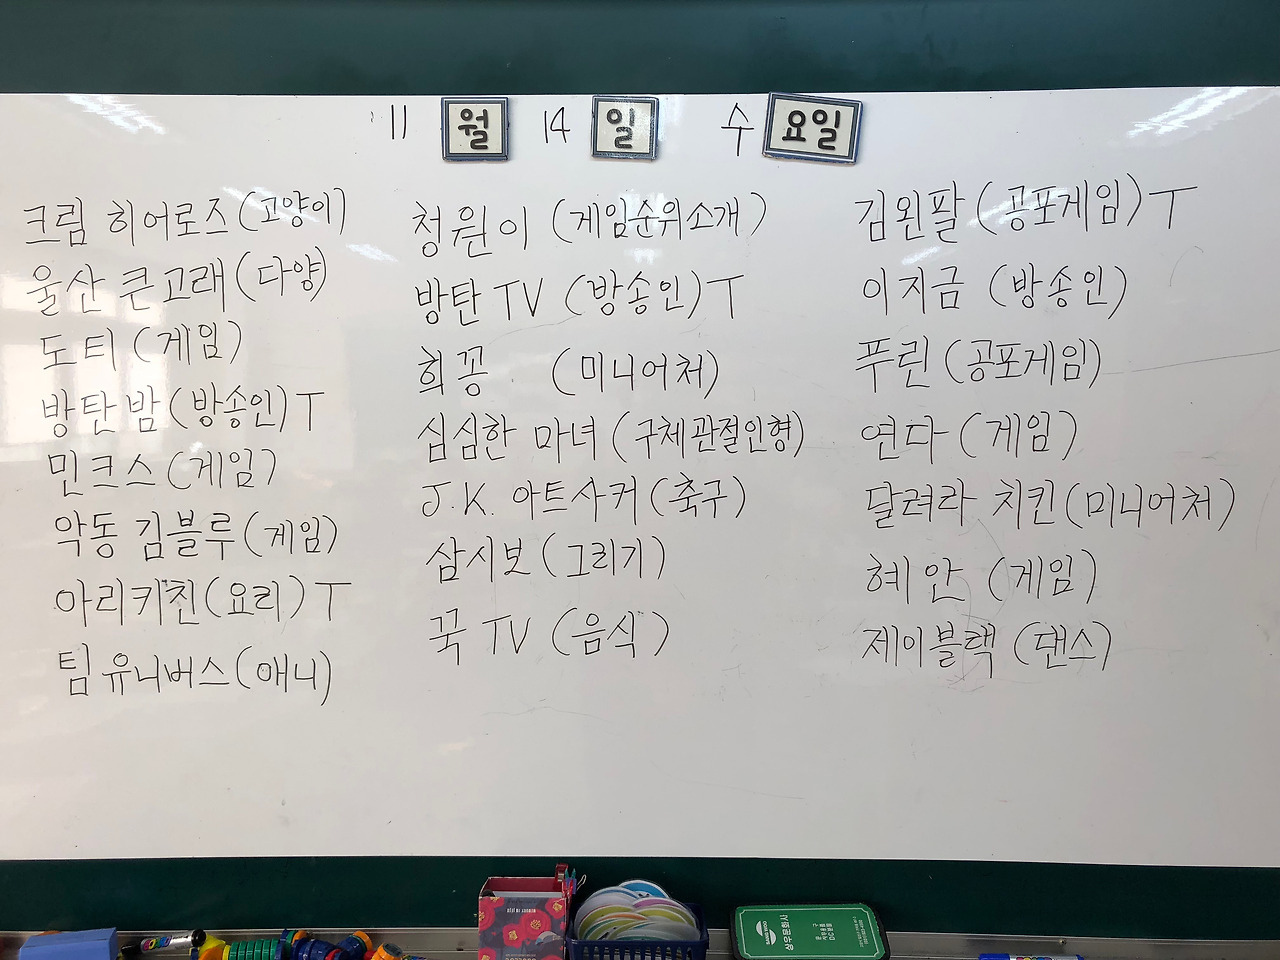 11 월 14 일 수 요일
크림 히어로즈(고양이)
울산 큰고래(다양)
도티(게임)
방탄밤(방송인)T
민크스(게임)
악동 김블루(게임)
아리키친(요리)T
팀유니버스(애니)
청원이(게임순위소개)
방탄TV(방송인)T
희꽁 (미니어처)
심심한 마녀(구체관절인형)
J.K. 아트사커(축구)
삼시보(그리기)
꾹TV(음식)
김왼팔(공포게임)T
이지금(방송인)
푸린(공포게임)
연다(게임)
달려라 치킨(미니어처)
혜안(게임)
제이블랙(댄스)